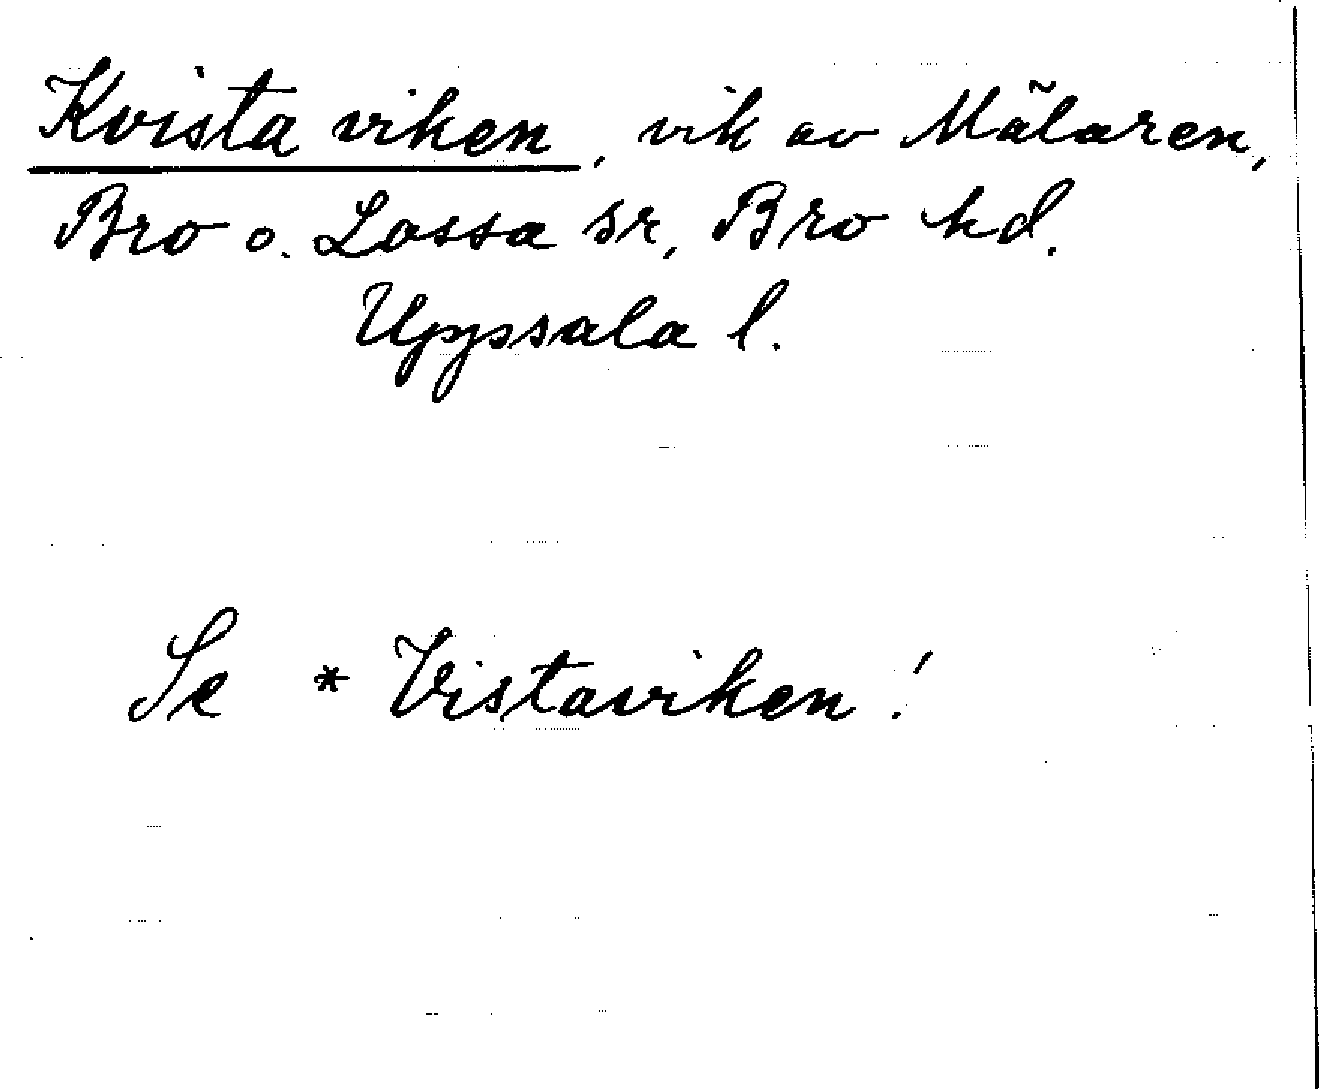 Kvista viken, vik av Mälaren,
Bro o. Lossa sr, Bro hd.
Uppsala l.
Se * Vistaviken!